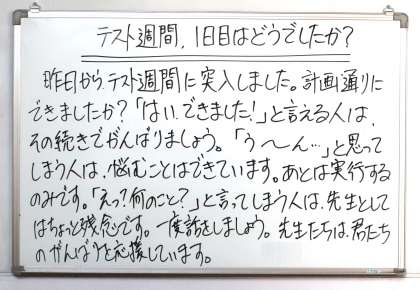 テスト週間、1日目はどうでしたか?
昨日から、テスト週間に突入しました。計画通りに
できましたか?「はい、できました!」と言える人は、
その続きでがんばりましょう。「う〜ん…」と思って
しまう人は、悩むことはできています。あとは実行する
のみです。「えっ?何のこと?」と言ってしまう人は、先生として
はちょっと残念です。一度話をしましょう。先生たちは、君たち
のがんばりを応援しています。